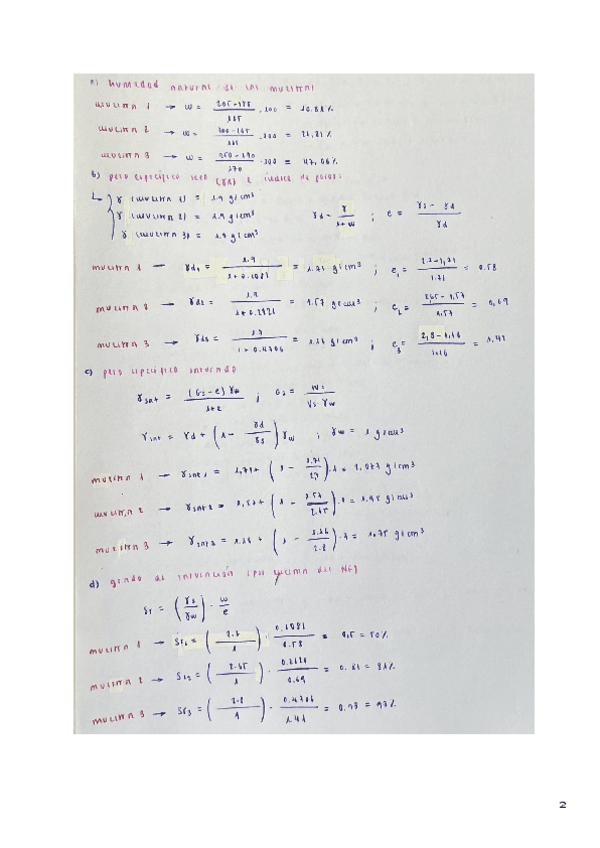 a) humedad natural de las muestras
muestra 1 → w = (205-185)/185 · 100 = 10.81%
muestra 2 → w = (200-165)/165 · 100 = 21,21%
muestra 3 → w = (250-170)/170 · 100 = 47,06%
b) peso específico seco (γd) e índice de poros:
γ (muestra 1) = 1.9 g/cm³
γ (muestra 2) = 1.9 g/cm³
γ (muestra 3) = 1.7 g/cm³
γd = γ/(1+w) ; e = (γs - γd)/γd
muestra 1 → γd₁ = 1.9/(1+0.1081) = 1.71 g/cm³ ; e₁ = (2.7-1,71)/1.71 = 0.58
muestra 2 → γd₂ = 1.9/(1+0.2121) = 1.57 g/cm³ ; e₂ = (2,65-1,57)/1.57 = 0,69
muestra 3 → γd₃ = 1.7/(1+0.4706) = 1.16 g/cm³ ; e₃ = (2,8-1,16)/1.16 = 1.41
c) peso específico saturado
γsat = (Gs-e)γw/(1+e) ; Gs = Ws/(Vs·γw)
γsat = γd + (1 - γd/γs) γw ; γw = 1 g/cm³
muestra 1 → γsat₁ = 1,71+ (1 - 1,71/2,7)·1 = 2,077 g/cm³
muestra 2 → γsat₂ = 1,57+ (1 - 1.57/2.65)·1 = 1.95 g/cm³
muestra 3 → γsat₃ = 1.16 + (1 - 1.16/2.8)·1 = 1.75 g/cm³
d) grado de saturación (por encima del NF)
Sr = (γs/γw) · w/e
muestra 1 → Sr₁ = (2.7/1) · 0.1081/0.58 = 0,5 = 50%
muestra 2 → Sr₂ = (2.65/1) · 0.2121/0.69 = 0.81 = 81%
muestra 3 → Sr₃ = (2.8/1) · 0.4706/1.41 = 0.93 = 93%
2